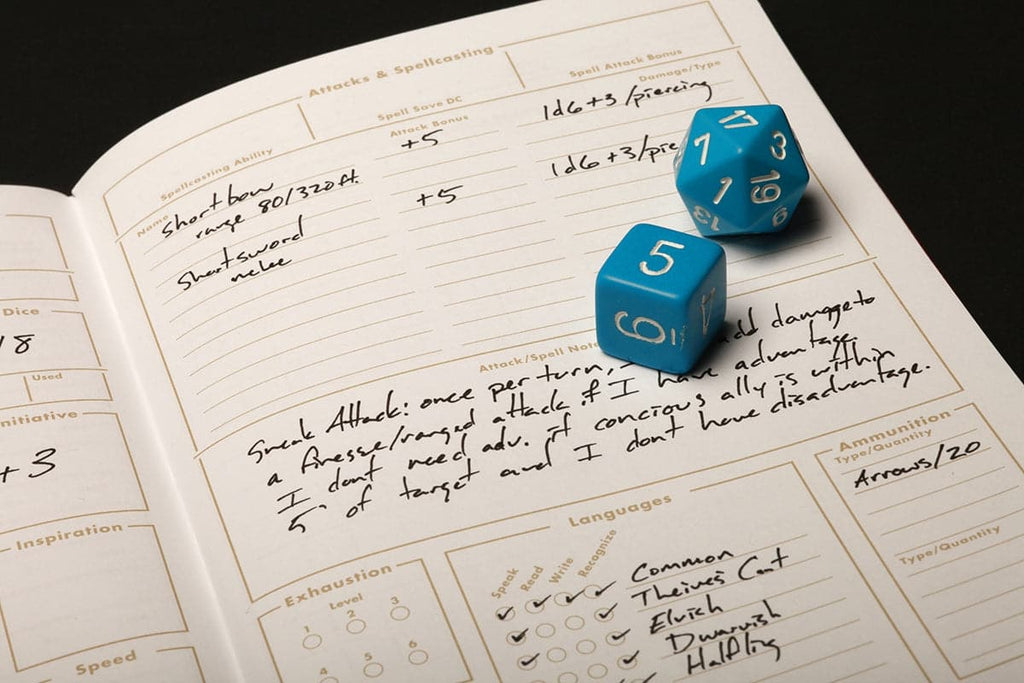 Attacks & Spellcasting
Spellcasting Ability
Spell Save DC
Spell Attack Bonus
Name
Attack Bonus
Damage/Type
Shortbow
+5
1d6+3/piercing
range 80/320ft.
Shortsword
+5
1d6+3/pie
melee
17
7
3
1
19
13
9
5
6
1
Attack/Spell Note
Sneak Attack: once per turn, add damage to
a finesse/ranged attack if I have advantage
I dont need adv. if concious ally is within
5' of target and I dont have disadvantage.
Dice
18
Used
nitiative
+3
Inspiration
Speed
Exhaustion
Level
1
2
3
4
5
6
Languages
Speak
Read
Write
Recognize
Common
Theives Cant
Elvish
Dwarvish
Halfling
Ammunition
Type/Quantity
Arrows/20
Type/Quantity